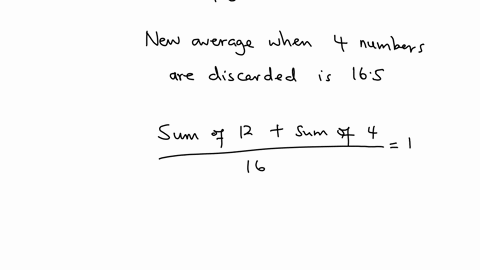 New average when 4 numbers
are discarded is 16.5
Sum of 12 + sum of 4
= 1
16